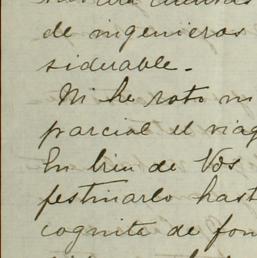 de ingenieros
siderable.-
Ni he roto ni
parcial el viag
En bien de Vds
festinarlo hast
cognita de fon